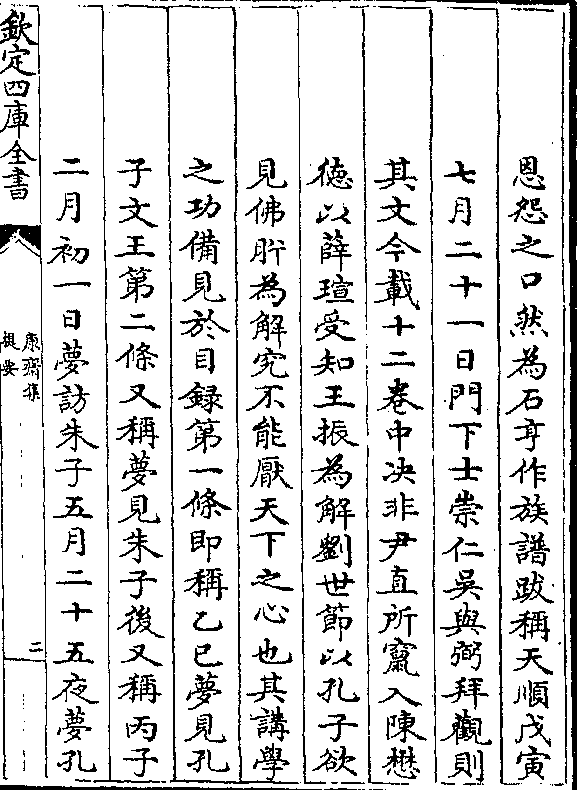 恩怨之口然為石亨作族譜跋稱天順戊寅
七月二十一日門下士崇仁吳與弼拜觀則
其文今載十二卷中决非尹直所竄入陳懋
德以薛瑄受知王振為解劉世節以孔子欲
見佛肸為解究不能厭天下之心也其講學
之功備見於日録第一條即稱乙巳夢見孔
子文王第二條又稱夢見朱子後又稱丙子
二月初一日夢訪朱子五月二十五夜夢孔
欽定四庫全書
康齋集
提要
二